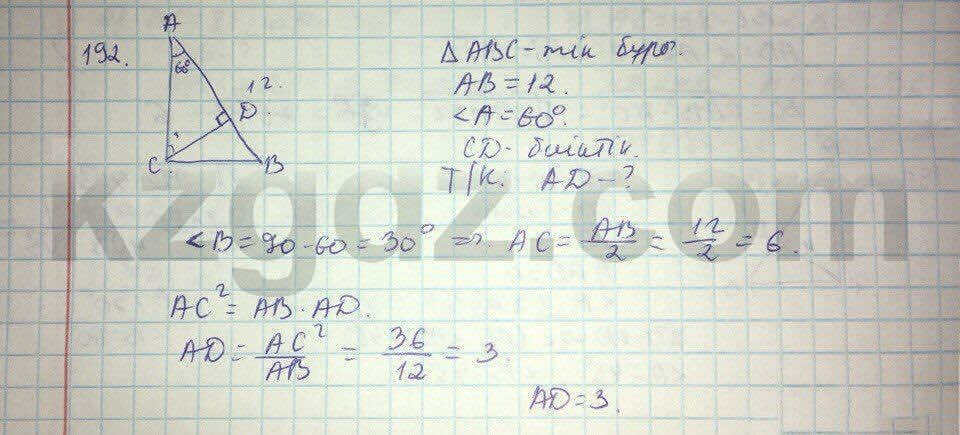 192.
A
60°
12.
D.
C.
B
Δ ABC - тік бұры.
AB = 12.
<A = 60°.
CD - биіктік.
Т/К: AD - ?
<B = 90 - 60 = 30° => AC = AB/2 = 12/2 = 6.
AC² = AB · AD.
AD = AC²/AB = 36/12 = 3.
AD = 3.
kzgdz.com